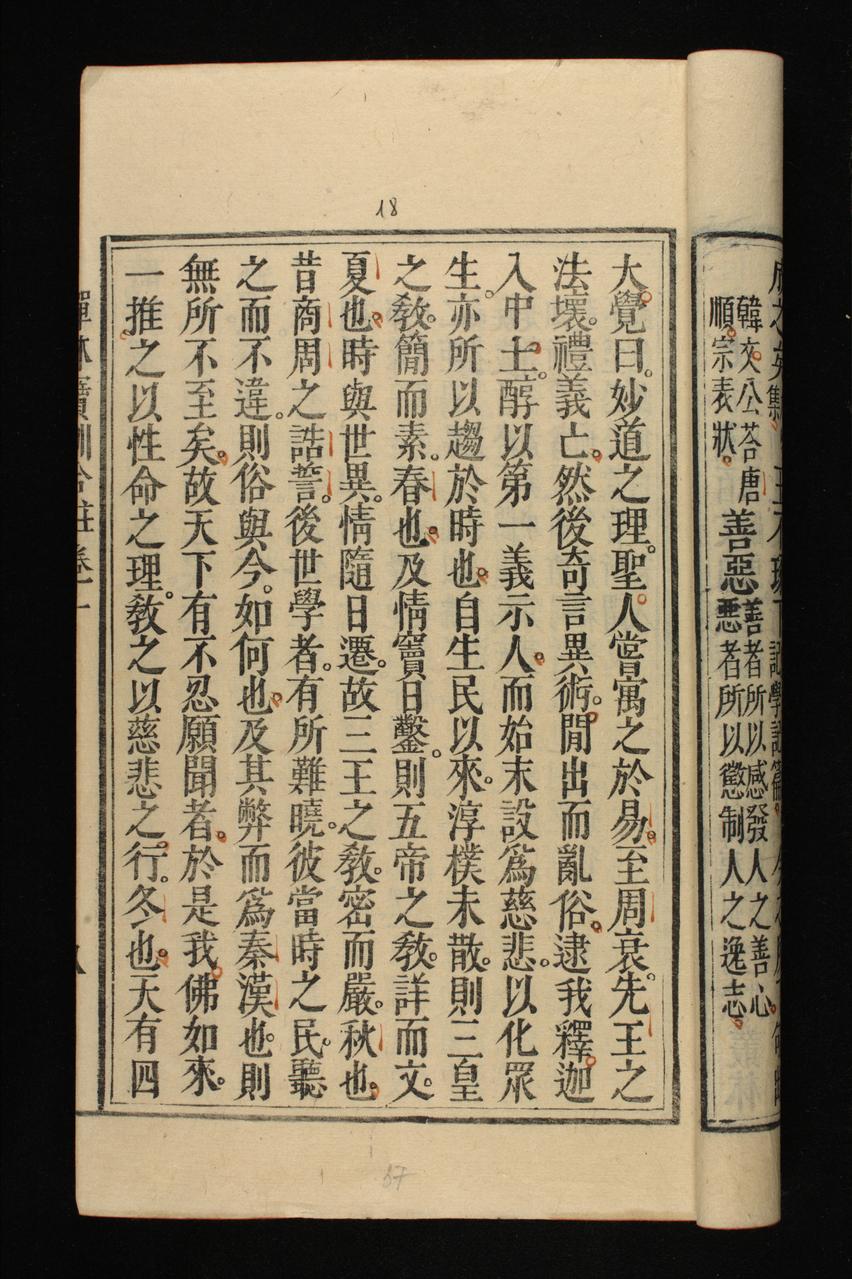 韓文公荅唐
順宗表狀
善惡
善者所以感發人之善心
惡者所以懲制人之逸志
18
大覺曰。妙道之理。聖人嘗寓之於易。至周衰。先王之
法壞。禮義亡。然後奇言異術。閒出而亂俗。逮我釋迦
入中土。醇以第一義示人。而始末設爲慈悲。以化眾
生。亦所以趨於時也。自生民以來。淳樸未散。則三皇
之敎。簡而素。春也。及情竇日鑿。則五帝之敎。詳而文。
夏也。時與世異。情隨日遷。故三王之敎。密而嚴。秋也。
昔商周之誥誓。後世學者。有所難曉。彼當時之民。聽
之而不違。則俗與今。如何也。及其弊而爲秦漢也。則
無所不至矣。故天下有不忍願聞者。於是我佛如來。
一推之以性命之理。敎之以慈悲之行。冬也。天有四
57